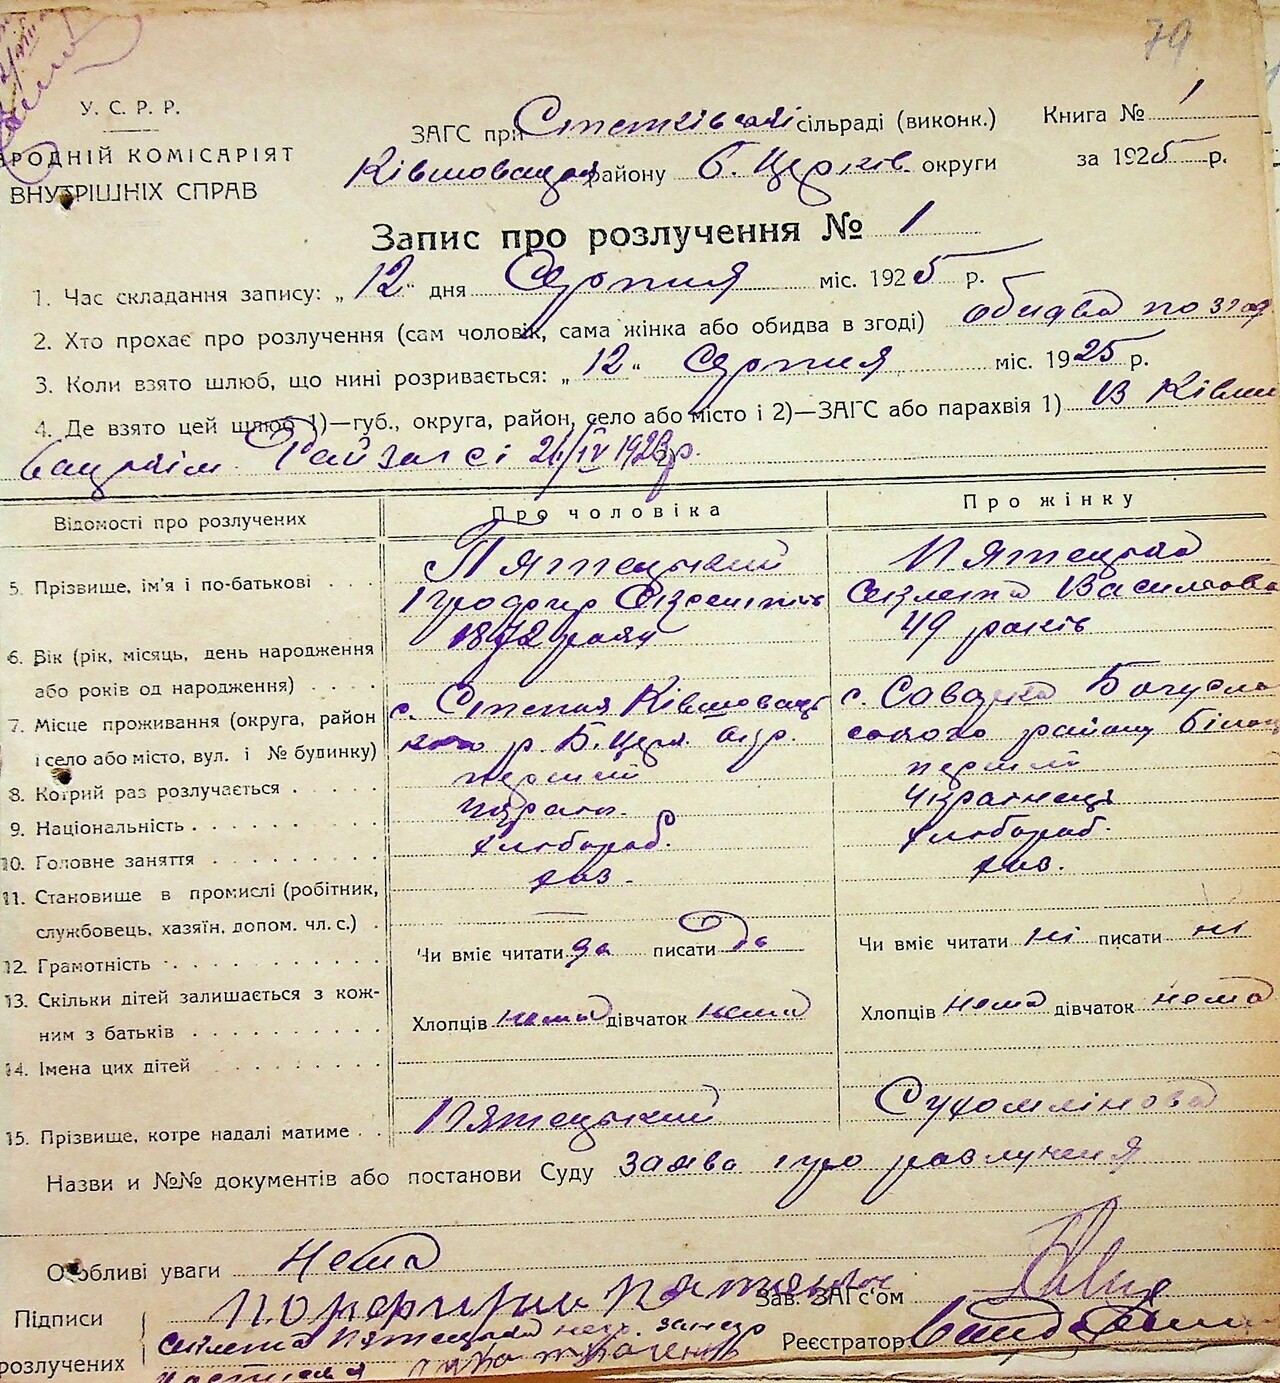 79
У. С. Р. Р.
РОДНІЙ КОМІСАРІЯТ
ВНУТРІШНІХ СПРАВ
ЗАГС при сільраді (виконк.) Книга № 1
району Б. Церків. округи за 1925 р.
Запис про розлучення № 1
1. Час складання запису: „12“ дня Серпня міс. 1925 р.
2. Хто прохає про розлучення (сам чоловік, сама жінка або обидва в згоді) обидва по згод
3. Коли взято шлюб, що нині розривається: „12“ Серпня міс. 1925 р.
4. Де взято цей шлюб 1)—губ., округа, район, село або місто і 2)—ЗАГС або парахвія 1) В Ківш
Райзагсі 21/IV 1923 р.
Відомості про розлучених Про чоловіка Про жінку
5. Прізвище, ім'я і по-батькові Пятецький Пятецька
Василівна
6. Вік (рік, місяць, день народження 1872 року 49 років
або років од народження)
7. Місце проживання (округа, район с. Степня Ківшоваць с. Богусла
і село або місто, вул. і № будинку) кого р Б. Церк. окр. ського району Білоц
8. Котрий раз розлучається перший перший
9. Національність україн. Українець
10. Головне заняття хлібороб. хлібороб.
11. Становище в промислі (робітник, хаз. хаз.
службовець, хазяїн, допом. чл. с.)
12. Грамотність Чи вміє читати да писати да Чи вміє читати ні писати ні
13. Скільки дітей залишається з кож-
ним з батьків Хлопців нема дівчаток нема Хлопців нема дівчаток нема
14. Імена цих дітей
15. Прізвище, котре надалі матиме Пятецький Сухомлінова
Назви и №№ документів або постанови Суду Заява про розлучення
Особливі уваги Нема
Підписи Зав. ЗАГС'ом
розлучених Пятецька негр. Реєстратор